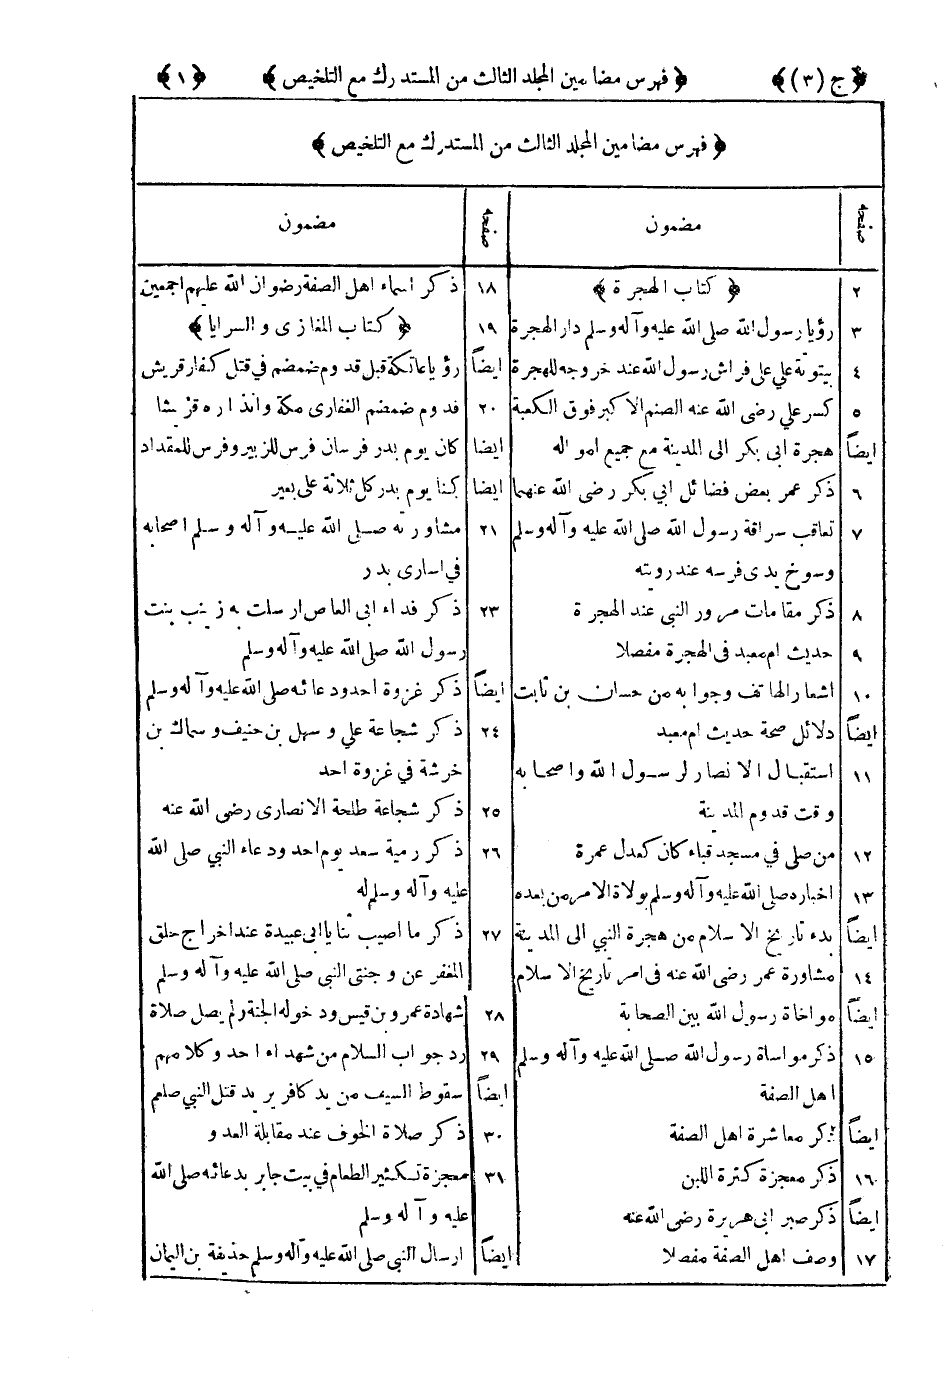 ﴿ج (٣)﴾ ﴿فهرس مضامين المجلد الثالث من المستدرك مع التلخيص﴾ ﴿١﴾
﴿فهرس مضامين المجلد الثالث من المستدرك مع التلخيص﴾
صفحه مضمون
٢ ﴿كتاب الهجرة﴾
٣ رؤيا رسول الله صلى الله عليه وآله وسلم دار الهجرة
٤ بيتوتة علي على فراش رسول الله عند خروجه للهجرة
٥ كسر علي رضى الله عنه الصنم الاكبر فوق الكعبة
ايضاً هجرة ابى بكر الى المدينة مع جميع امواله
٦ ذكر عمر بعض فضائل ابي بكر رضى الله عنهما
٧ تعاقب سراقة رسول الله صلى الله عليه وآله وسلم
وسوخ يدى فرسه عند رويته
٨ ذكر مقامات مرور النبي عند الهجرة
٩ حديث ام معبد فى الهجرة مفصلا
١٠ اشعار الهاتف وجوابه من حسان بن ثابت
ايضاً دلائل صحة حديث ام معبد
١١ استقبال الانصار لرسول الله واصحابه
وقت قدوم المدينة
١٢ من صلى في مسجد قباء كان كعدل عمرة
١٣ اخباره صلى الله عليه وآله وسلم بولاة الامر من بعده
ايضاً بدء تاريخ الاسلام من هجرة النبي الى المدينة
١٤ مشاورة عمر رضى الله عنه فى امر تاريخ الاسلام
ايضاً مواخاة رسول الله بين الصحابة
١٥ ذكر مواساة رسول الله صلى الله عليه وآله وسلم
اهل الصفة
ايضاً ذكر معاشرة اهل الصفة
١٦ ذكر معجزة كثرة اللبن
ايضاً ذكر صبر ابى هريرة رضى الله عنه
١٧ وصف اهل الصفة مفصلا
صفحه مضمون
١٨ ذكر اسماء اهل الصفة رضوان الله عليهم اجمعين
١٩ ﴿كتاب المغازى والسرايا﴾
ايضاً رؤيا عاتكة قبل قدوم ضمضم في قتل كفار قريش
٢٠ قدوم ضمضم الغفارى مكة وانذاره قريشا
ايضا كان يوم بدر فرسان فرس للزبير وفرس للمقداد
ايضا كنا يوم بدر كل ثلاثة على بعير
٢١ مشاورته صلى الله عليه وآله وسلم اصحابه
في اسارى بدر
٢٣ ذكر فداء ابى العاص ارسلت به زينب بنت
رسول الله صلى الله عليه وآله وسلم
ايضاً ذكر غزوة احد ودعائه صلى الله عليه وآله وسلم
٢٤ ذكر شجاعة علي و سهل بن حنيف وسماك بن
خرشة في غزوة احد
٢٥ ذكر شجاعة طلحة الانصارى رضى الله عنه
٢٦ ذكر رمية سعد يوم احد ودعاء النبي صلى الله
عليه وآله وسلم له
٢٧ ذكر ما اصيب ثنايا ابى عبيدة عند اخراج حلق
المغفر عن وجنتى النبي صلى الله عليه وآله وسلم
٢٨ شهادة عمرو بن قيس ودخوله الجنة ولم يصل صلاة
٢٩ رد جواب السلام من شهداء احد وكلامهم
ايضاً سقوط السيف من يد كافر يريد قتل النبي صلعم
٣٠ ذكر صلاة الخوف عند مقابلة العدو
٣١ معجزة تكثير الطعام في بيت جابر بدعائه صلى الله
عليه وآله وسلم
ايضاً ارسال النبي صلى الله عليه وآله وسلم حذيفة بن اليمان